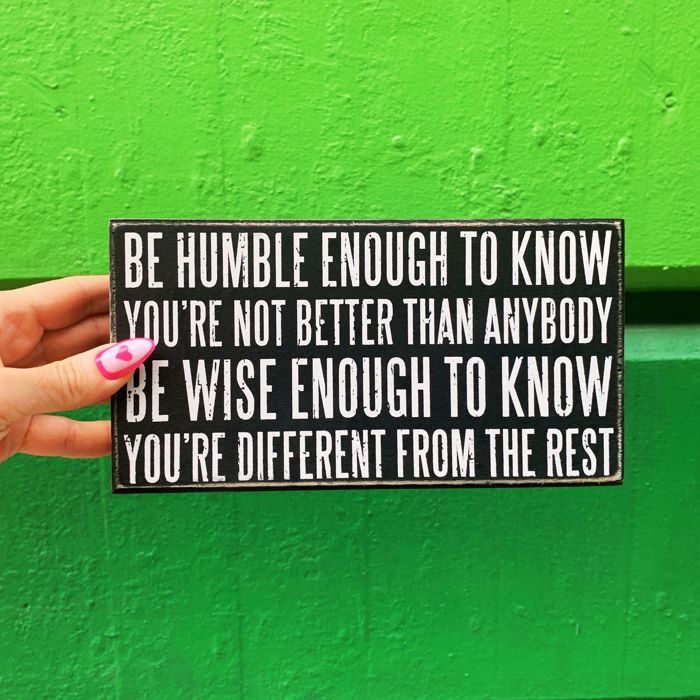 BE HUMBLE ENOUGH TO KNOW
YOU'RE NOT BETTER THAN ANYBODY
BE WISE ENOUGH TO KNOW
YOU'RE DIFFERENT FROM THE REST